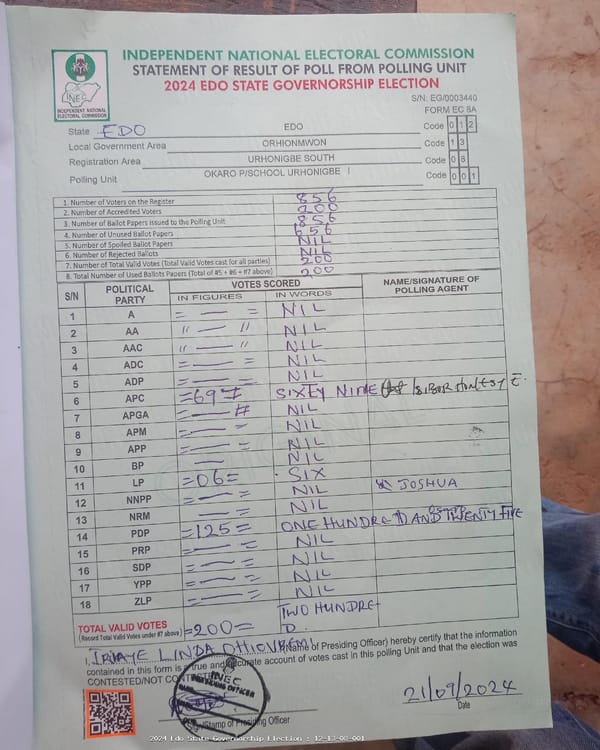 INDEPENDENT NATIONAL ELECTORAL COMMISSION
STATEMENT OF RESULT OF POLL FROM POLLING UNIT
2024 EDO STATE GOVERNORSHIP ELECTION
INEC
INDEPENDENT NATIONAL
ELECTORAL COMMISSION
S/N: EG/0003440
FORM EC 8A
State EDO EDO Code 0 1 2
Local Government Area ORHIONMWON Code 1 3
Registration Area URHONIGBE SOUTH Code 0 8
Polling Unit OKARO P/SCHOOL URHONIGBE I Code 0 0 1
1. Number of Voters on the Register 856
2. Number of Accredited Voters 200
3. Number of Ballot Papers issued to the Polling Unit 856
4. Number of Unused Ballot Papers 656
5. Number of Spoiled Ballot Papers NIL
6. Number of Rejected Ballots NIL
7. Number of Total Valid Votes (Total Valid Votes cast for all parties) 200
8. Total Number of Used Ballots Papers (Total of #5 + #6 + #7 above) 200
S/N POLITICAL PARTY VOTES SCORED NAME/SIGNATURE OF POLLING AGENT
IN FIGURES IN WORDS
1 A = — = NIL
2 AA " — " NIL
3 AAC " — " NIL
4 ADC = — = NIL
5 ADP = — = NIL
6 APC =69= SIXTY NINE
7 APGA = — = NIL
8 APM = — = NIL
9 APP = — = NIL
10 BP — NIL
11 LP =06= SIX
12 NNPP = — = NIL JOSHUA
13 NRM = — = NIL
14 PDP =125= ONE HUNDRED AND TWENTY FIVE
15 PRP = — = NIL
16 SDP = — = NIL
17 YPP = — = NIL
18 ZLP = — = NIL
TOTAL VALID VOTES =200= TWO HUNDRED
(Record Total Valid Votes under #7 above)
I, LINDA (Name of Presiding Officer) hereby certify that the information
contained in this form is a true and accurate account of votes cast in this polling Unit and that the election was
CONTESTED/NOT
INEC
PRESIDING OFFICER
21/09/2024
Date
Stamp of Presiding Officer
2024 Edo State Governorship Election : 12-13-08-001